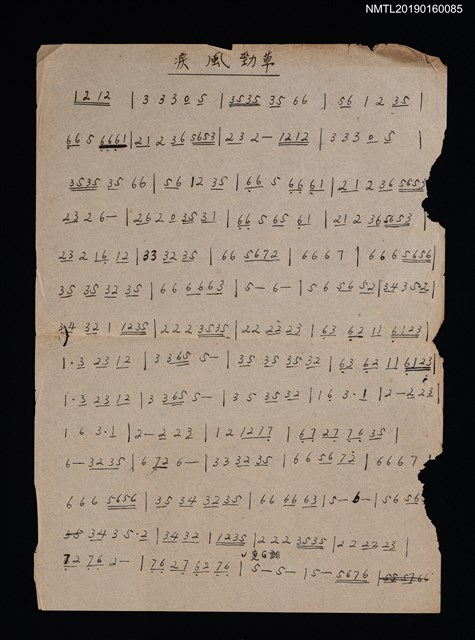 NMTL20190160085
疾風勁草
1212 | 3 3 3 0 5 | 3535 35 66 | 56 1 2 35 |
66 5 6661 | 21 2 36 5653 | 2 3 2 – 1212 | 3 3 3 0 5 |
3535 35 66 | 56 12 35 | 66 5 66 61 | 21 2 36 5653
23 2 6 – | 26 2 0 35 31 | 66 5 65 61 | 21 2 36 5653 |
23 2 16 12 | 33 32 35 | 66 5672 | 6 6 6 7 | 6 6 6 5656
35 35 32 35 | 6 6 6663 | 5 – 6 – | 5 6 56 52 | 34 35·2 |
34 32 | 1235 | 2 2 2 3535 | 22 22 23 | 63 62 11 6123 |
1·3 23 12 | 3 3 65 5 – | 35 35 35 32 | 63 62 11 6123 |
1·3 23 12 | 3 3 65 5 – | 3 5 35 32 | 16 3·1 | 2 – 2 23 |
1 6 3·1 | 2 – 2 23 | 12 1217 | 67 27 76 35 |
6 – 32 35 | 6 72 6 – | 33 32 35 | 6 6 56 72 | 6 6 6 7
6 6 6 5656 | 35 34 32 35 | 66 66 63 | 5 – 6 – | 56 56
34 3 5·2 | 34 32 | 1235 | 2 2 2 3535 | 2 2 22 23 |
72 76 2 – | 76 27 62 76 | 5 – 5 – | 5 – 5676 |